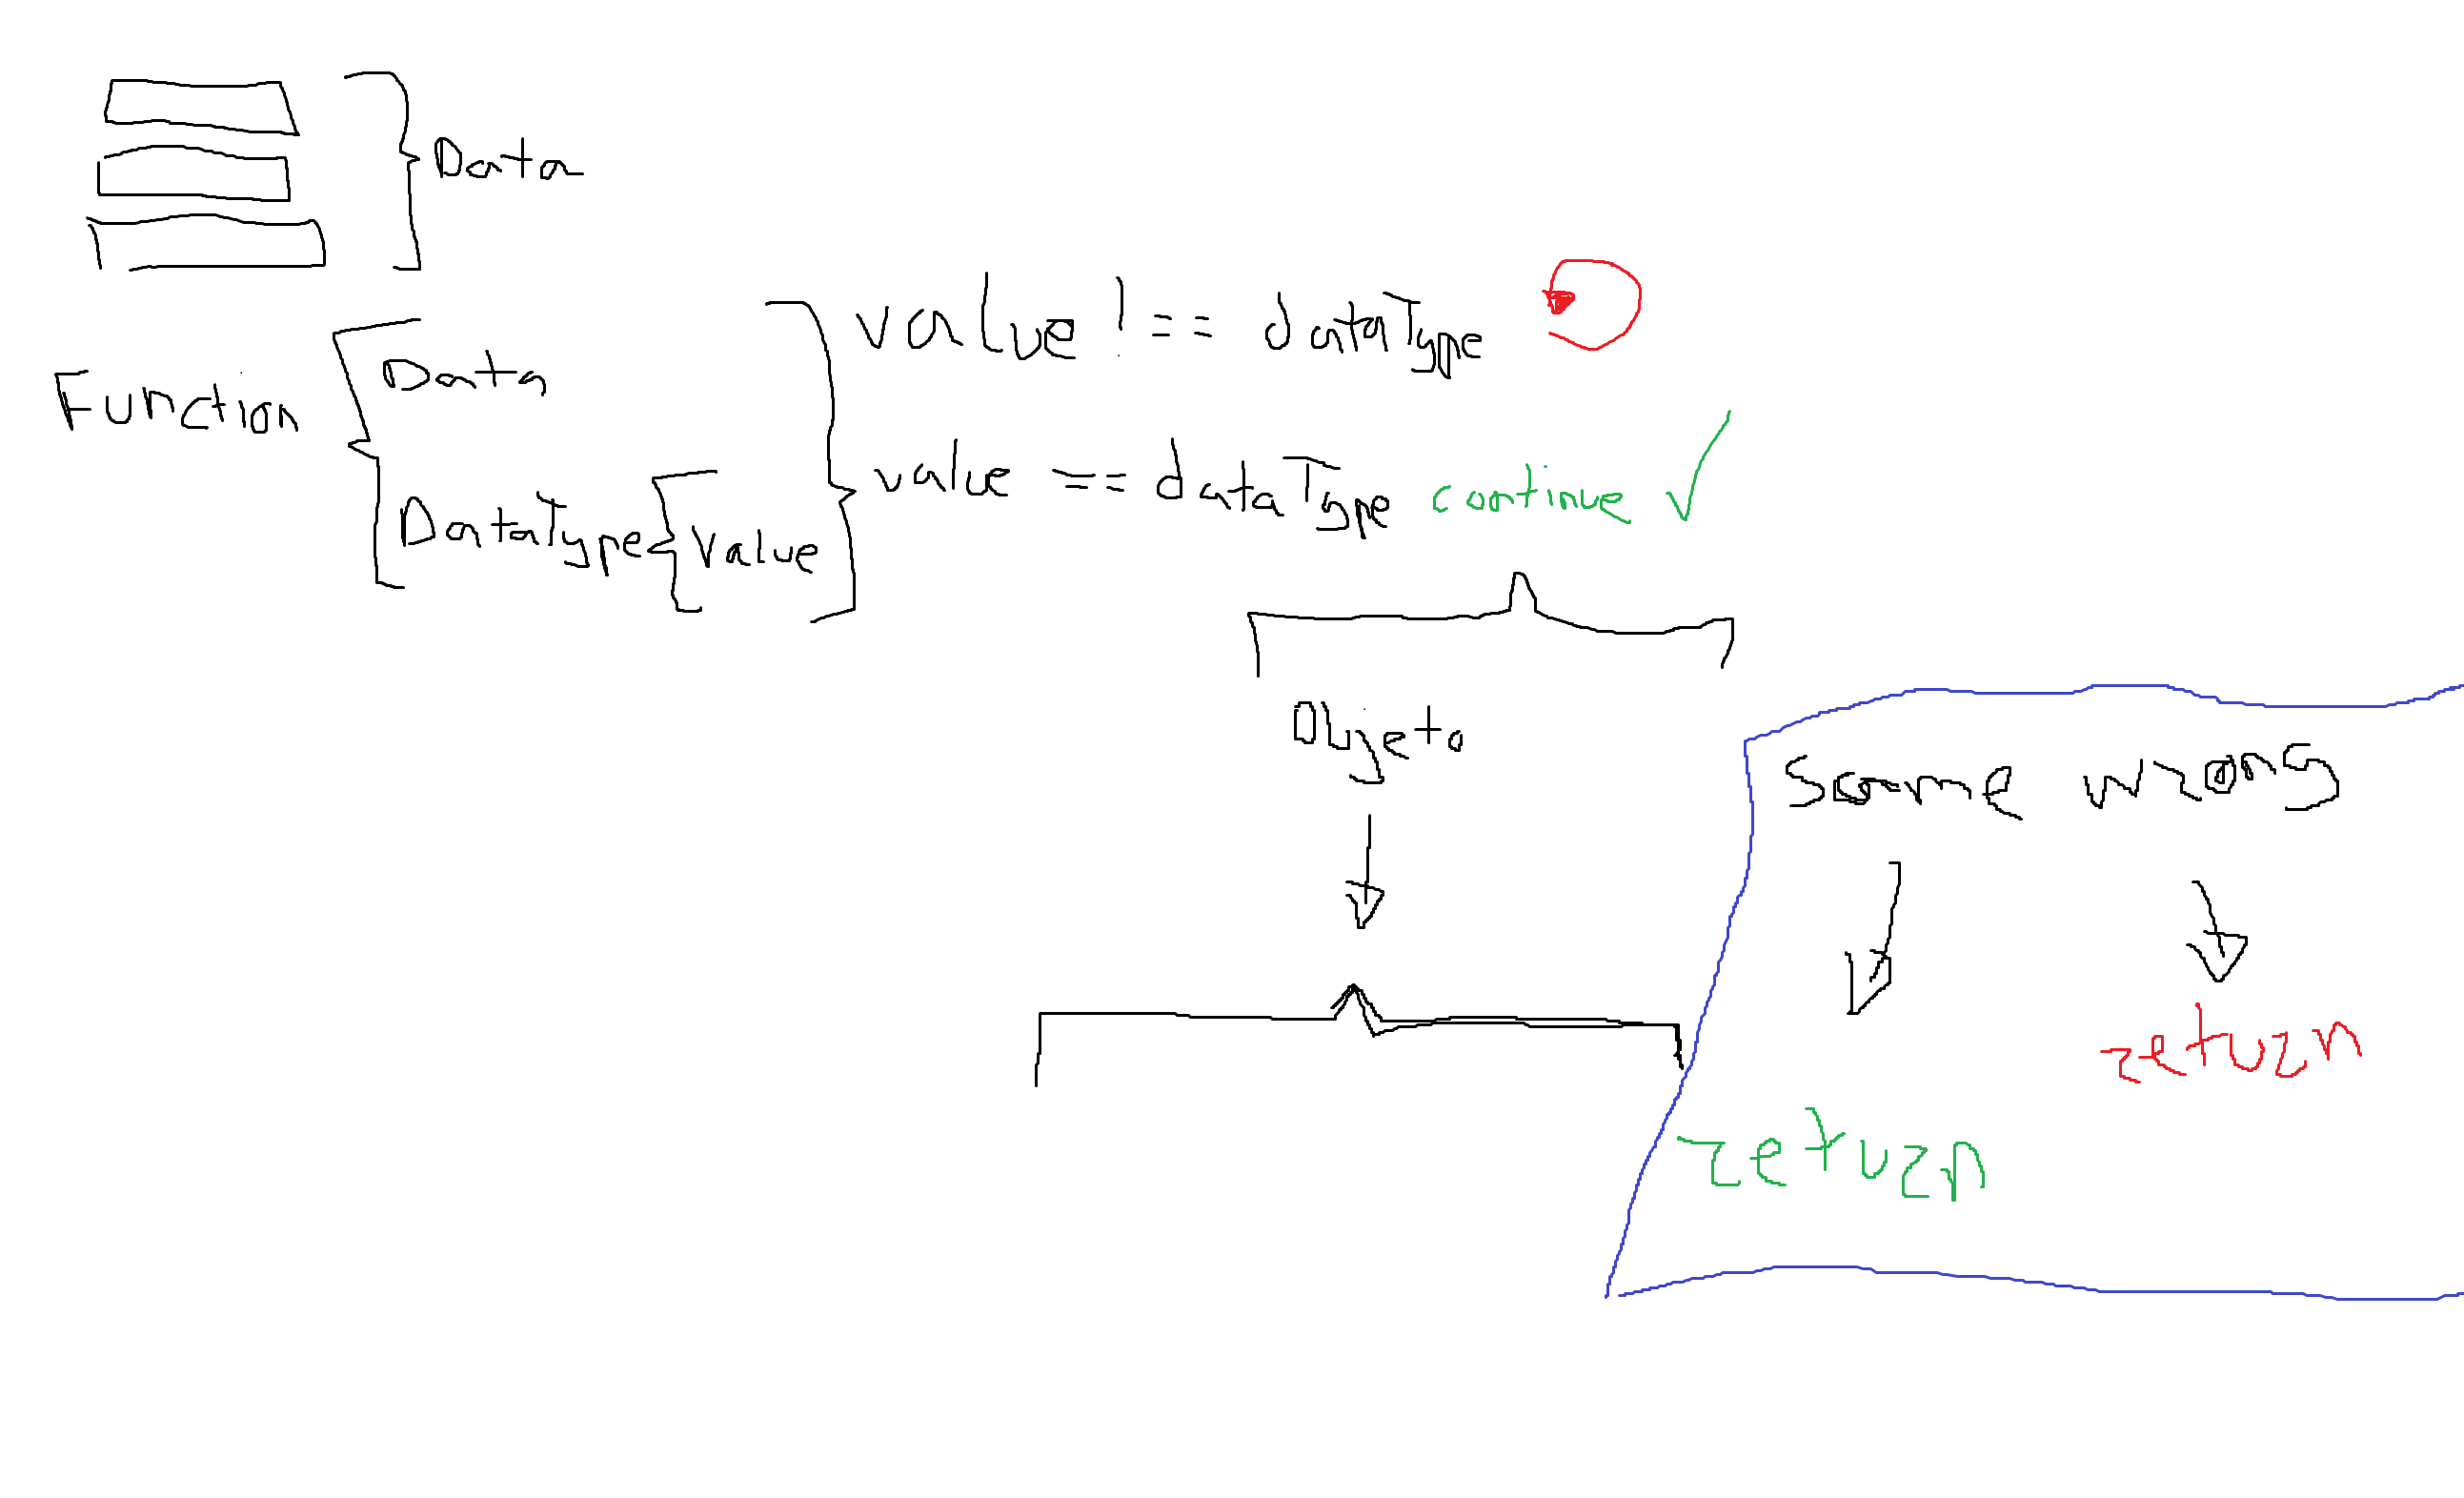 Data
Function
Data
DataType
Value
value !== dataType
value == dataType continue
Objeto
same wrong
return
return